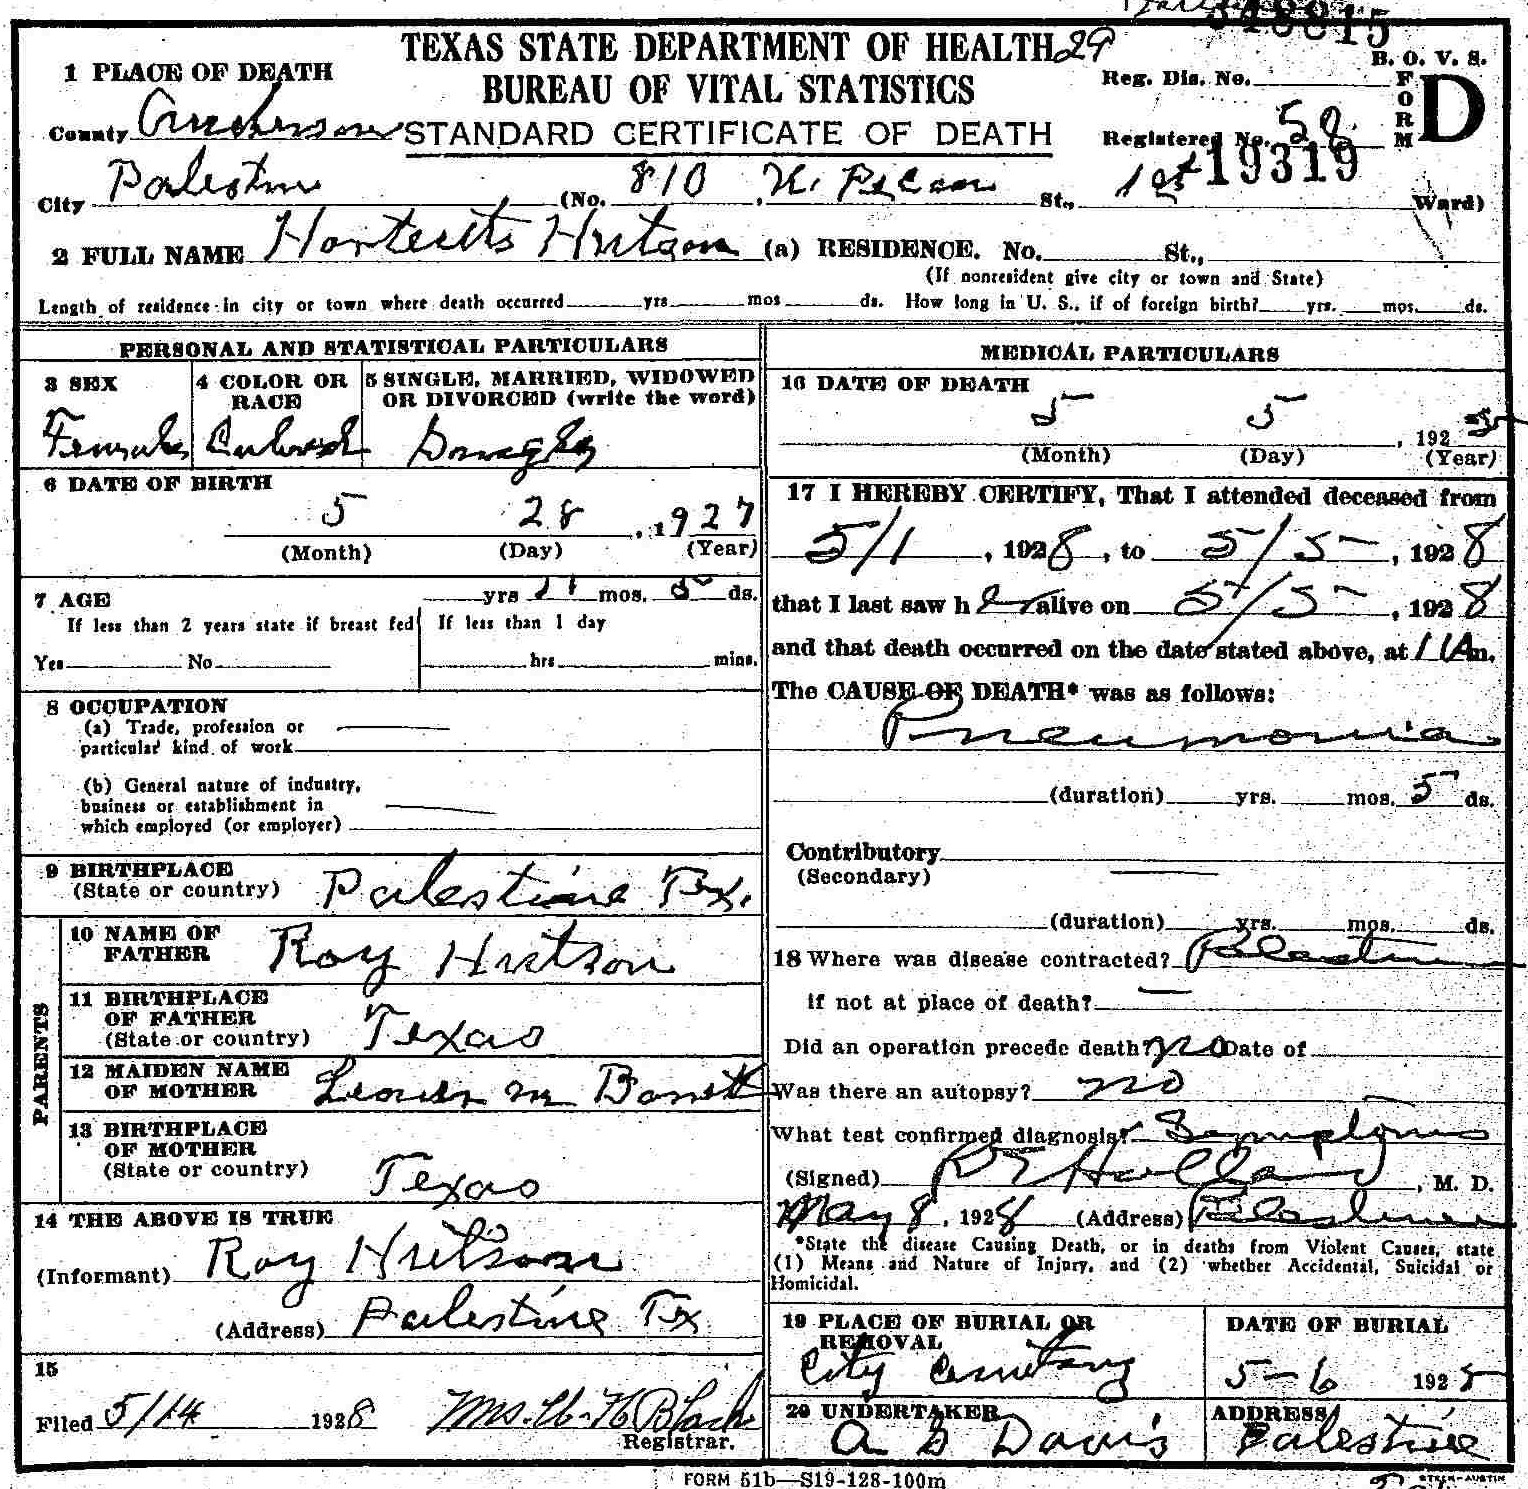 348815
TEXAS STATE DEPARTMENT OF HEALTH 29
BUREAU OF VITAL STATISTICS
STANDARD CERTIFICATE OF DEATH
B. O. V. S.
FORM D
Reg. Dis. No.
Registered No. 58
19319
1 PLACE OF DEATH
County Anderson
City Palestine (No. 810, N. Pecan St., 1st Ward)
2 FULL NAME Hutson (a) RESIDENCE. No. St.,
(If nonresident give city or town and State)
Length of residence in city or town where death occurred yrs. mos ds. How long in U. S., if of foreign birth? yrs. mos. ds.
PERSONAL AND STATISTICAL PARTICULARS
3 SEX
Female
4 COLOR OR RACE
5 SINGLE, MARRIED, WIDOWED
OR DIVORCED (write the word)
6 DATE OF BIRTH
5 28, 1927
(Month) (Day) (Year)
7 AGE yrs 11 mos. 5 ds.
If less than 2 years state if breast fed
Yes No
If less than 1 day
hrs mins.
8 OCCUPATION
(a) Trade, profession or
particular kind of work
(b) General nature of industry,
business or establishment in
which employed (or employer)
9 BIRTHPLACE
(State or country) Palestine Tex.
PARENTS
10 NAME OF
FATHER Roy Hutson
11 BIRTHPLACE
OF FATHER
(State or country) Texas
12 MAIDEN NAME
OF MOTHER
13 BIRTHPLACE
OF MOTHER
(State or country) Texas
14 THE ABOVE IS TRUE
(Informant) Roy Hutson
(Address) Palestine Tx
15
Filed 5/14 1928
Registrar.
MEDICAL PARTICULARS
16 DATE OF DEATH
5 5, 192
(Month) (Day) (Year)
17 I HEREBY CERTIFY, That I attended deceased from
5/1, 1928, to 5/5, 1928
that I last saw her alive on 5/5, 1928
and that death occurred on the date stated above, at 11 A m.
The CAUSE OF DEATH* was as follows:
Pneumonia
(duration) yrs. mos. 5 ds.
Contributory
(Secondary)
(duration) yrs. mos. ds.
18 Where was disease contracted? Palestine
if not at place of death?
Did an operation precede death? no Date of
Was there an autopsy? no
What test confirmed diagnosis? Symptoms
(Signed) Holland, M. D.
May 8, 1928 (Address) Palestine
*State the disease Causing Death, or in deaths from Violent Causes, state
(1) Means and Nature of Injury, and (2) whether Accidental, Suicidal or
Homicidal.
19 PLACE OF BURIAL OR
REMOVAL
City Cemetary
DATE OF BURIAL
5-6 1928
20 UNDERTAKER
Davis
ADDRESS
Palestine
FORM 51b—S19-128-100m